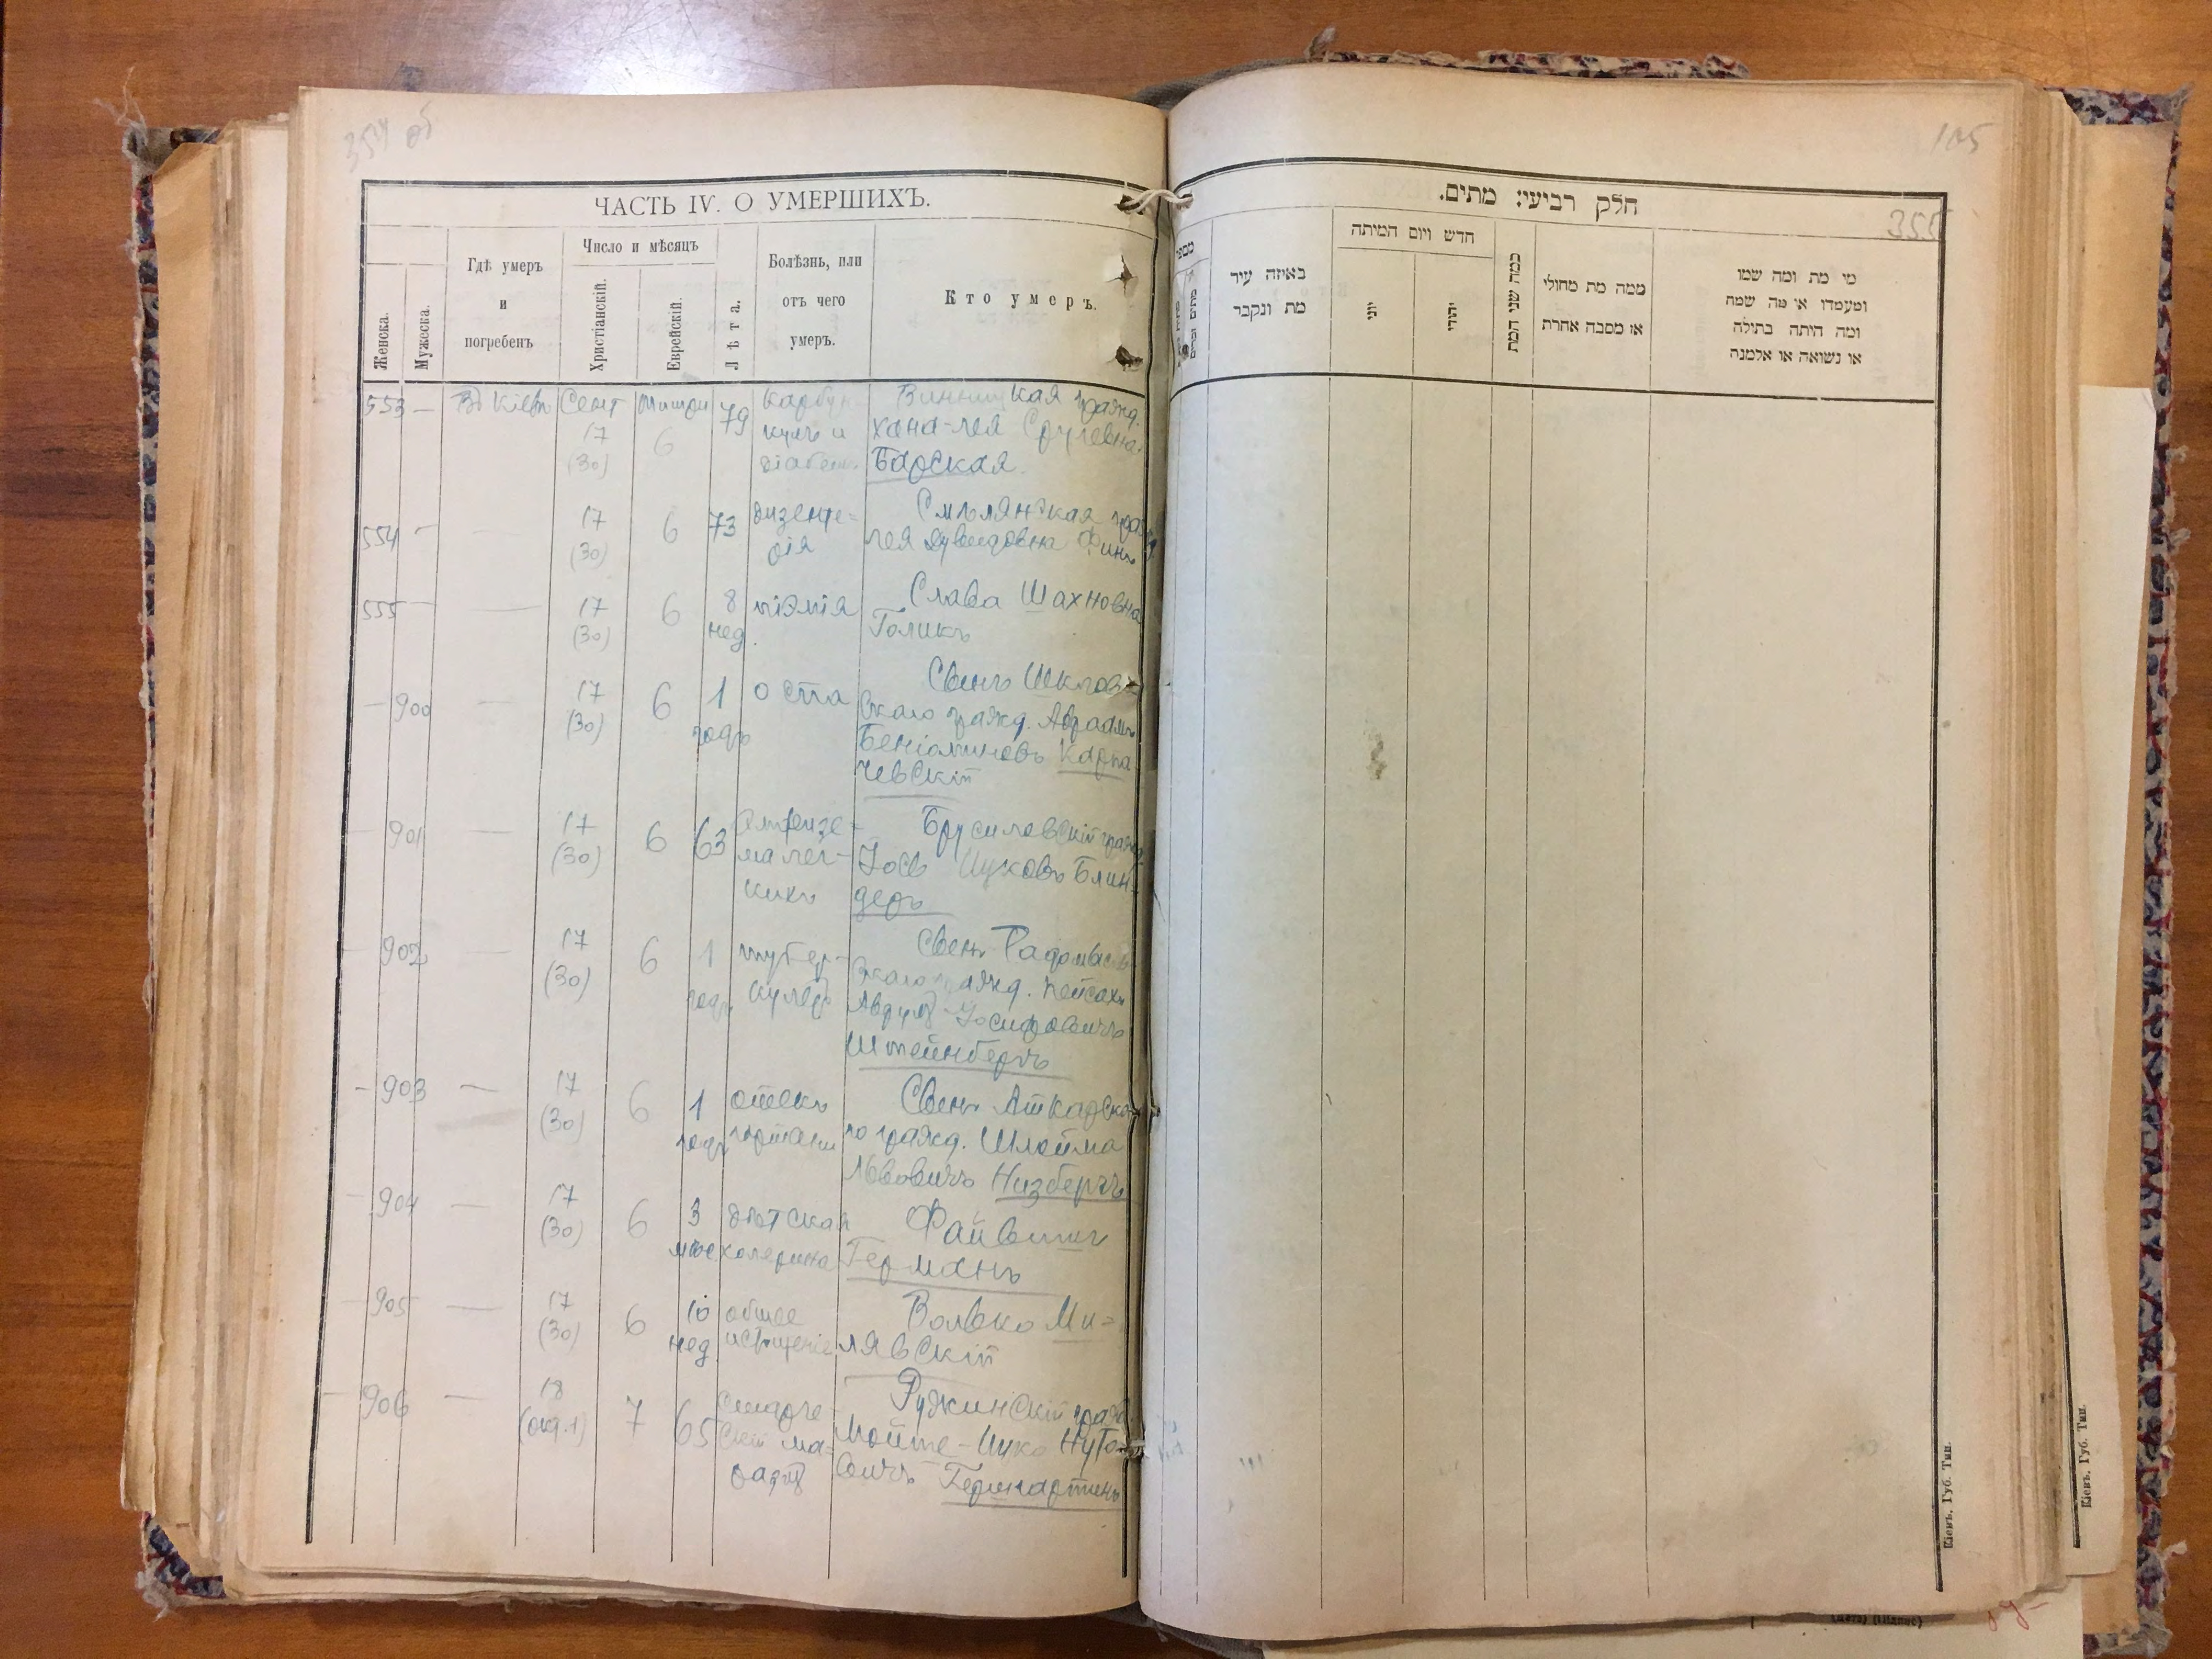 354 об
ЧАСТЬ IV. О УМЕРШИХЪ.
Женска.
Мужеска.
Гдѣ умеръ
и
погребенъ
Число и мѣсяцъ
Христіанскій.
Еврейскій.
Лѣта.
Болѣзнь, или
отъ чего
умеръ.
Кто умеръ.
553 — Въ Кіевѣ Сент 17 (30) тишри 6 79
карбун
кулъ и
діабет.
Винницкая гражд.
Хана-Лея Срулевна
Барская
554 — — 17 (30) 6 73
дизенте=
рія
Смѣлянская гражд.
Лея Дувидовна Финъ
555 — — 17 (30) 6 8 нед.
піэмія
Слава Шахновна
Голикъ
— 900 — 17 (30) 6 1 годъ
оспа
Сынъ Шклов=
скаго гражд. Авраамъ
Беніаминовъ Карпа
чевскій
— 901 — 17 (30) 6 63
Эмфизе=
ма лег-
кихъ
Брусиловскій гражд.
Іось Ицковъ Блин=
деръ
— 902 — 17 (30) 6 1 годъ
тубер-
кулезъ
Сынъ Радомысль
скаго гражд. Пейсахъ
Іосифовичъ
Штейнбергъ
— 903 — 17 (30) 6 1 годъ
отекъ
гортани
Сынъ
го гражд. Шлойма
Львовичъ Низбергъ
— 904 — 17 (30) 6 3 мѣс
дѣтская
холерина
Файвишъ
Германъ
— 905 — 17 (30) 6 10 нед
общее
истощеніе
Волько Ми=
лявскій
— 906 — 18 (окт. 1) 7 65
старче
скій ма-
размъ
Ружинскій гражд
Мойше-Ицко Нуто
вичъ
105
355
חלק רביעי: מתים.
מספר
באיזה עיר
מת ונקבר
חדש ויום המיתה
יוני
יהודי
כמה שני המת
ממה מת מחולי
או מסבה אחרת
מי מת ומה שמו
ומעמדו או מה שמה
ומה היתה בתולה
או נשואה או אלמנה
Кіевъ. Губ. Тип.
Кіевъ. Губ. Тип.